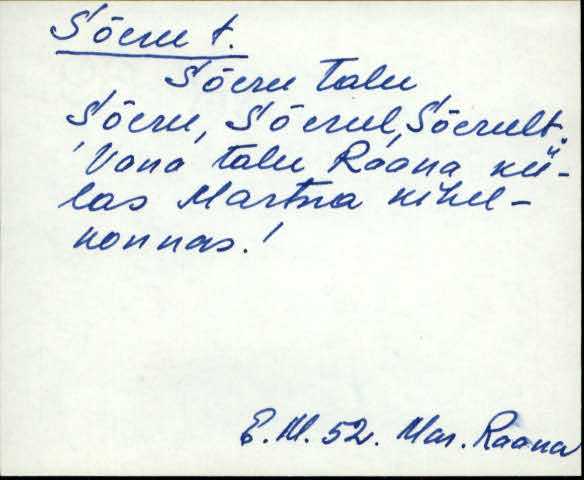 Sõeru t.
Sõeru talu
Sõeru, Sõerul, Sõerult.
Vana talu Rõõna kü-
las Martna kihel-
konnas.
E. M. 52. Mar. Raana